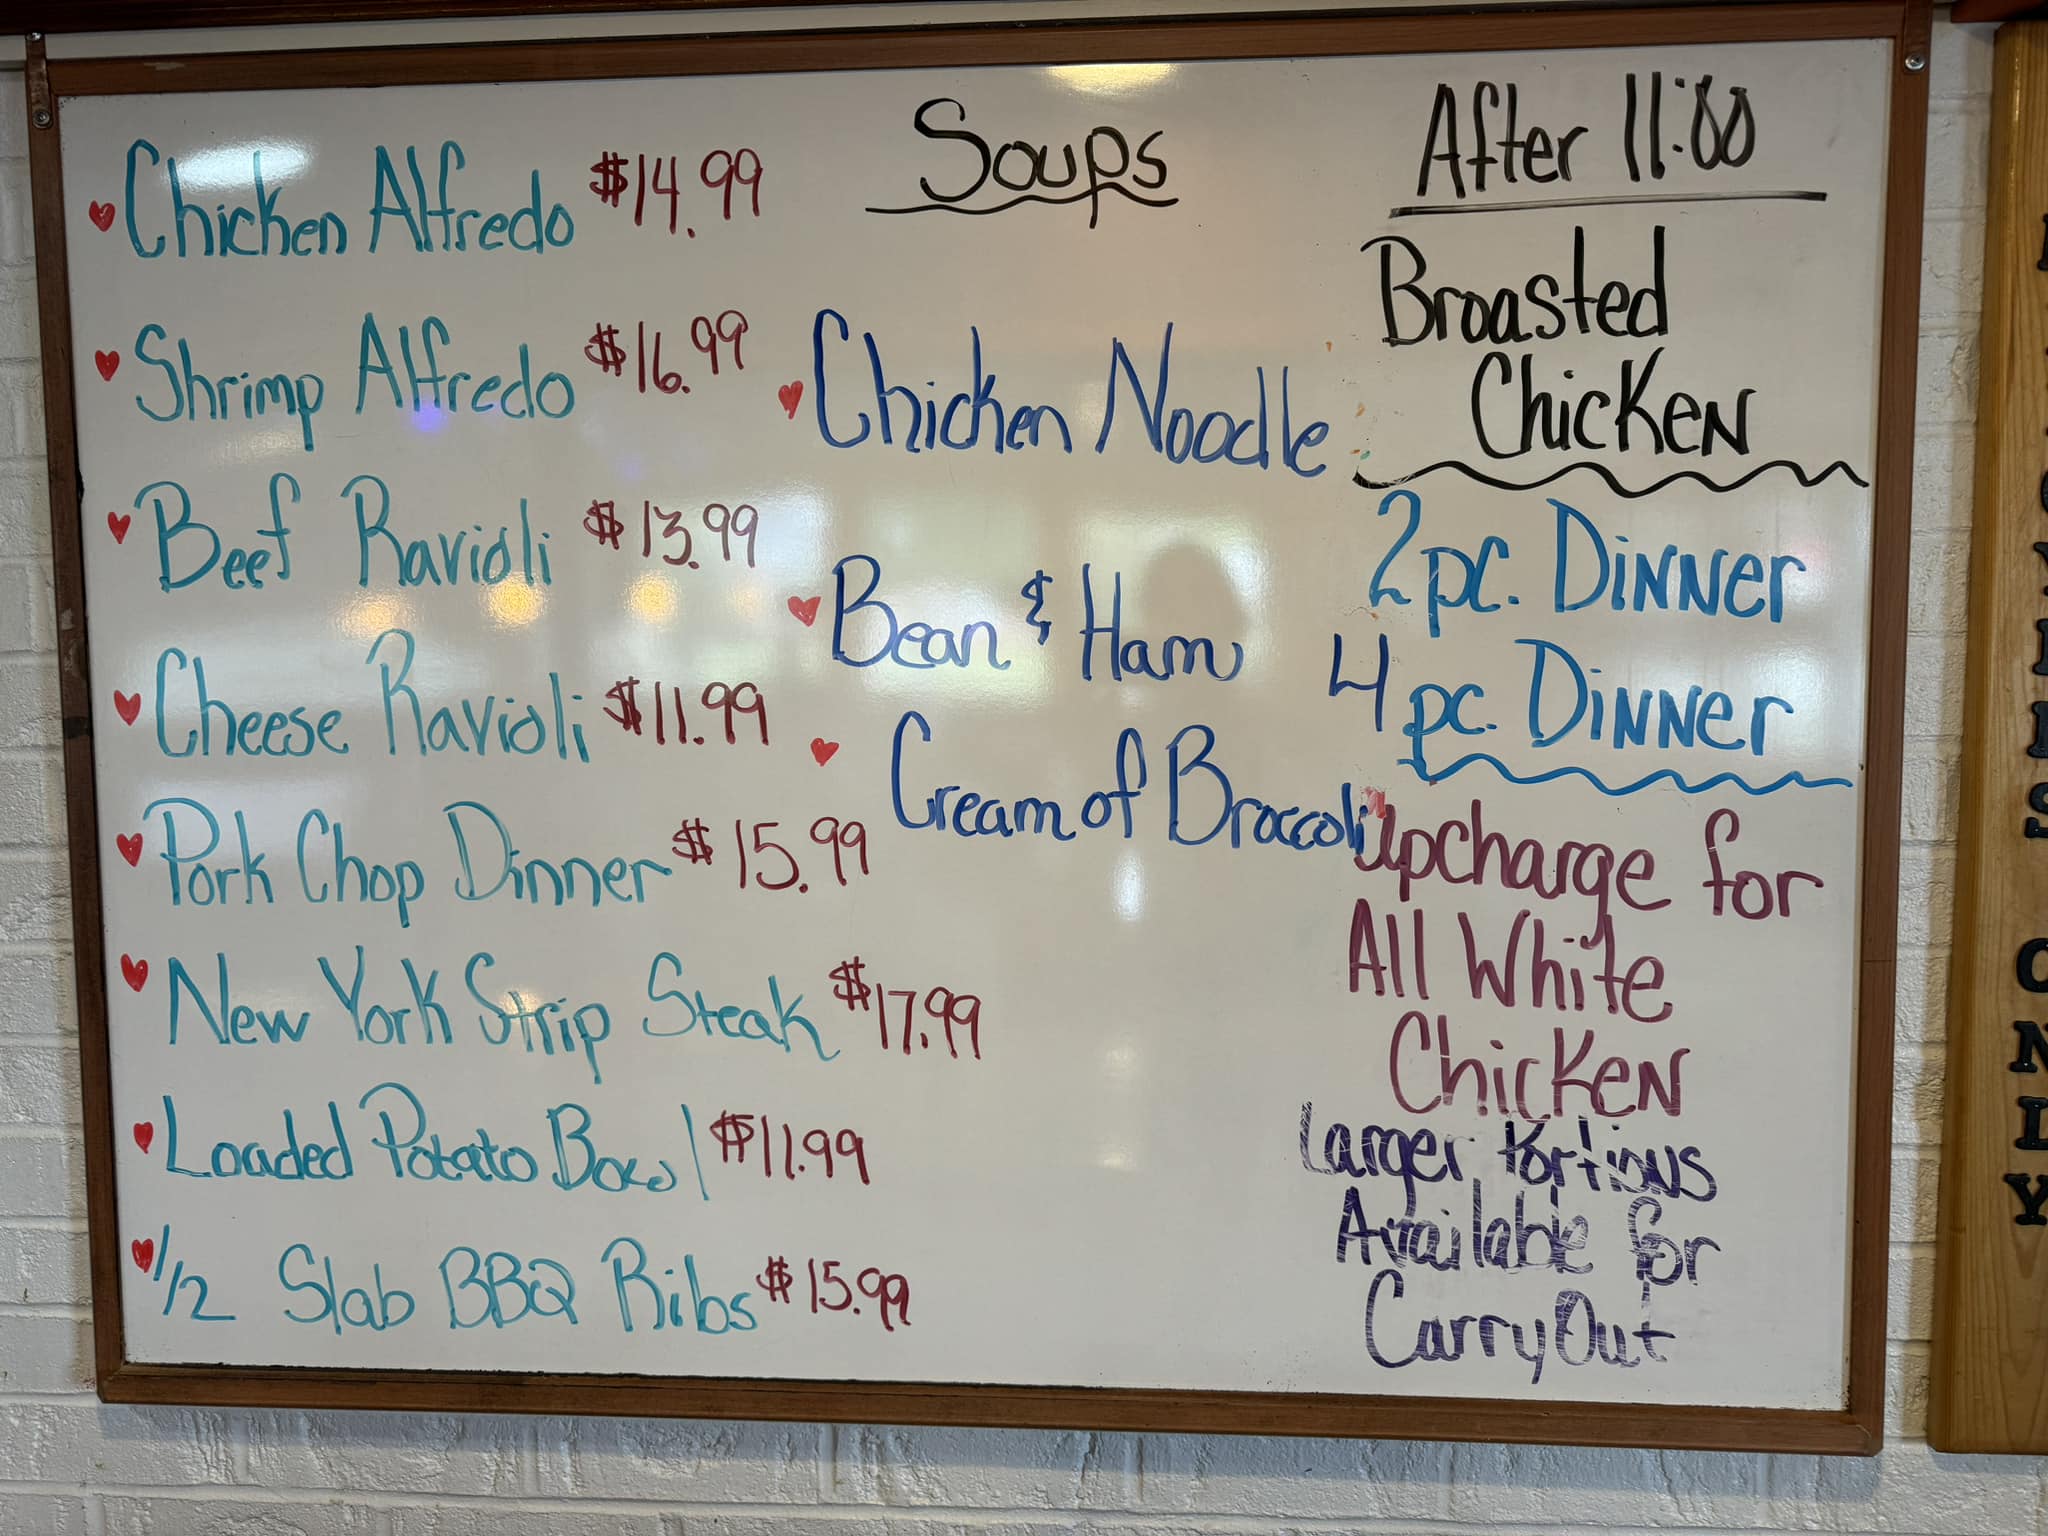 Chicken Alfredo $14.99
Shrimp Alfredo $16.99
Beef Ravioli $13.99
Cheese Ravioli $11.99
Pork Chop Dinner $15.99
New York Strip Steak $17.99
Loaded Potato Bowl $11.99
1/2 Slab BBQ Ribs $15.99
Soups
Chicken Noodle
Bean & Ham
Cream of Broccoli
After 11:00
Broasted
Chicken
2pc. Dinner
4pc. Dinner
Upcharge for
All White
Chicken
Larger Portions
Available for
Carry Out
ONLY